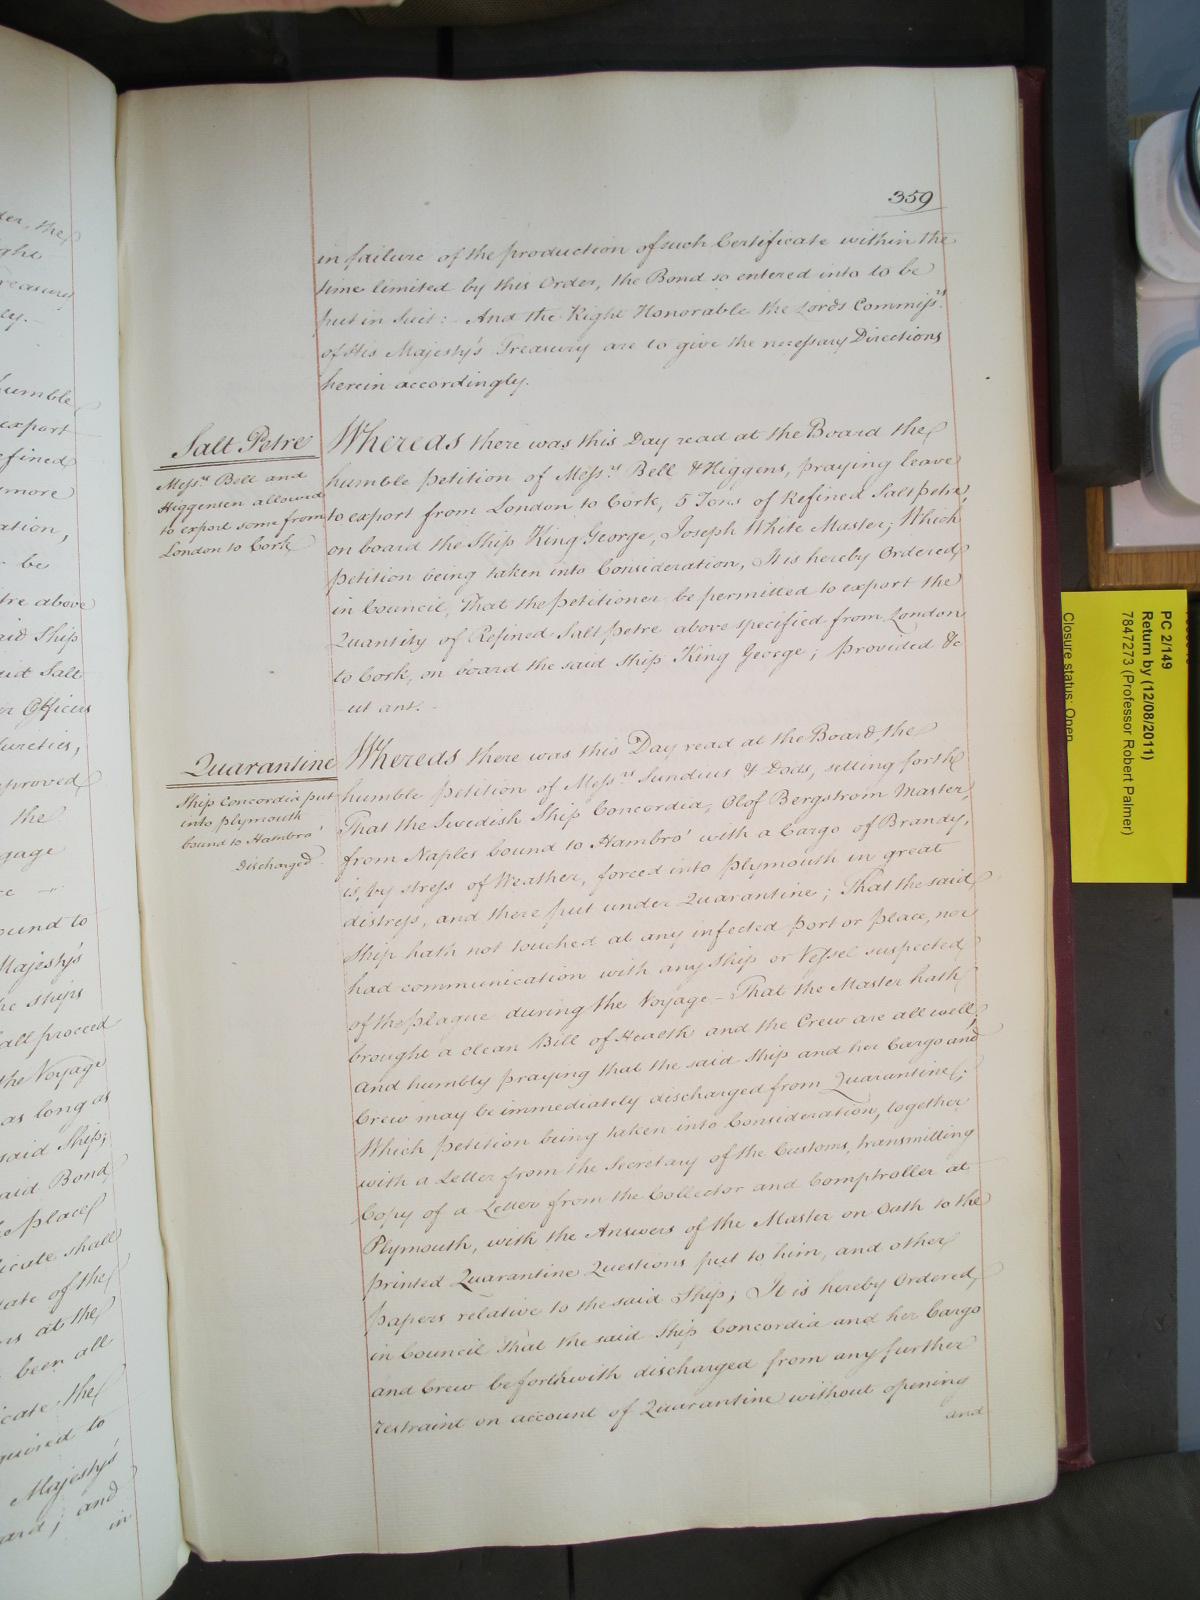 359
in failure of the production of such Certificate within the
time limited by this Order, the Bond so entered into to be
put in Suit: And the Right Honorable the Lords Commiss.rs
of His Majesty's Treasury are to give the necessary Directions
herein accordingly.
Salt Petre
Mess.rs Bell and
Higgensen allowed
to export some from
London to Cork
Whereas there was this Day read at the Board the
humble Petition of Mess.rs Bell & Higgens, praying leave
to export from London to Cork, 5 Tons of Refined Salt petre,
on board the Ship King George, Joseph White Master; Which
Petition being taken into Consideration, It is hereby Ordered
in Council, That the Petitioner be permitted to export the
Quantity of Refined Salt petre above specified from London
to Cork, on board the said Ship King George; provided &c
ut ant.
Quarantine
Ship Concordia put
into Plymouth
bound to Hambro'
Discharged
Whereas there was this Day read at the Board, the
humble Petition of Mess.rs Sundius & Dods, setting forth
That the Swedish Ship Concordia, Olof Bergstrom Master,
from Naples bound to Hambro' with a Cargo of Brandy,
is, by stress of Weather, forced into Plymouth in great
distress, and there put under Quarantine; That the said
Ship hath not touched at any infected Port or place, nor
had communication with any Ship or Vessel suspected
of the plague during the Voyage - That the Master hath
brought a clean Bill of Health and the Crew are all well,
and humbly praying that the said Ship and her Cargo and
Crew may be immediately discharged from Quarantine;
Which Petition being taken into Consideration, together
with a Letter from the Secretary of the Customs, transmitting
Copy of a Letter from the Collector and Comptroller at
Plymouth, with the Answers of the Master on Oath to the
printed Quarantine Questions put to him, and other
papers relative to the said Ship; It is hereby Ordered,
in Council That the said Ship Concordia and her Cargo
and Crew be forthwith discharged from any further
restraint on account of Quarantine without opening
and
the
humble
export
refined
more
be
above
said Ship
Salt
Officers
Sureties,
approved
the
bound to
Majesty's
the Ships
shall proceed
the Voyage
as long as
said Ship;
said Bond
place
shall
of the
at the
been all
the
required to
Majesty's
and
in
PC 2/149
Return by (12/08/2011)
7847273 (Professor Robert Palmer)
Closure status: Open